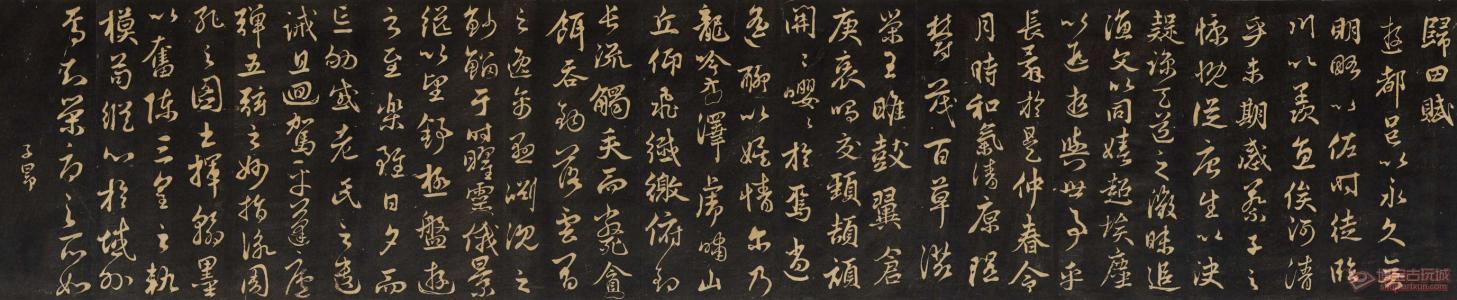 歸田賦
遊都邑以永久無
明略以佐時徒臨
川以羨魚俟河清
乎未期感蔡子之
慷慨從唐生以決
疑諒天道之微昧追
漁父以同嬉超埃塵
以遐逝與世事乎
長辭於是仲春令
月時和氣清原隰
鬱茂百草滋
榮王雎鼓翼倉
庚哀鳴交頸頡頏
關〻嚶〻於焉逍
遙聊以娛情爾乃
龍吟方澤虎嘯山
丘仰飛纖繳俯釣
長流觸矢而斃貪
餌吞鉤落雲間
之逸禽懸淵沉之
魦鰡于時曜靈俄景
繼以望舒極盤遊
之至樂雖日夕而
忘劬感老氏之遺
誡且迴駕乎蓬廬
彈五絃之妙指詠周
孔之圖書揮翰墨
以奮藻陳三皇之軌
模苟縱心於域外
焉知榮辱之所如
子昂